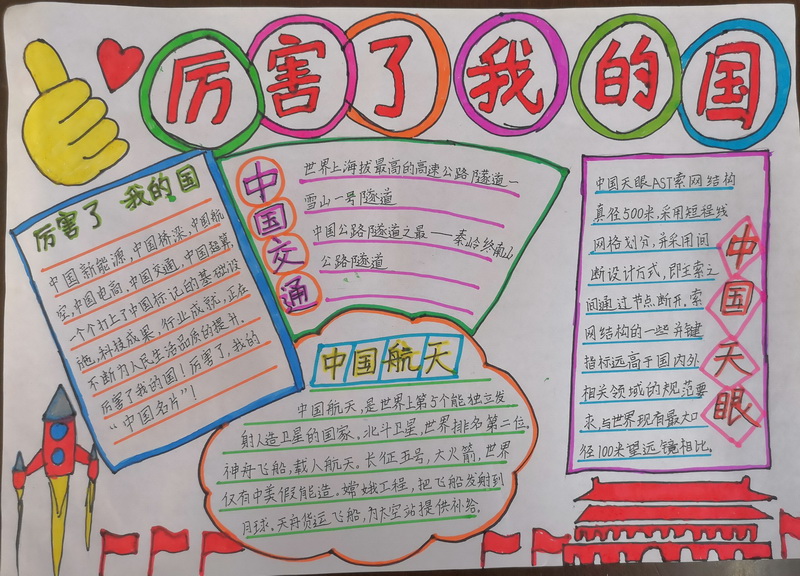 厉害了我的国
厉害了 我的国
中国新能源,中国桥梁,中国航
空,中国电商,中国交通,中国超算,
一个个打上了中国标记的基础设
施,科技成果,行业成就,正在
不断为人民生活品质的提升.
厉害了我的国!厉害了,我的
“中国名片”!
中国交通
世界上海拔最高的高速公路隧道一
雪山一号隧道
中国公路隧道之最——秦岭终南山
公路隧道
中国航天
中国航天,是世界上第5个能独立发
射人造卫星的国家.北斗卫星,世界排名第二位.
神舟飞船,载人航天.长征五号,大火箭,世界
仅有中美假能造.嫦娥工程,把飞船发射到
月球.天舟货运飞船,为太空站提供补给.
中国天眼
中国天眼AST索网结构
真径500米,采用短程线
网格划分,并采用间
断设计方式,即主索之
间通过节点断开,索
网结构的一些并键
指标远高于国内外
相关领域的规范要
求,与世界现有最大口
径100米望远镜相比.